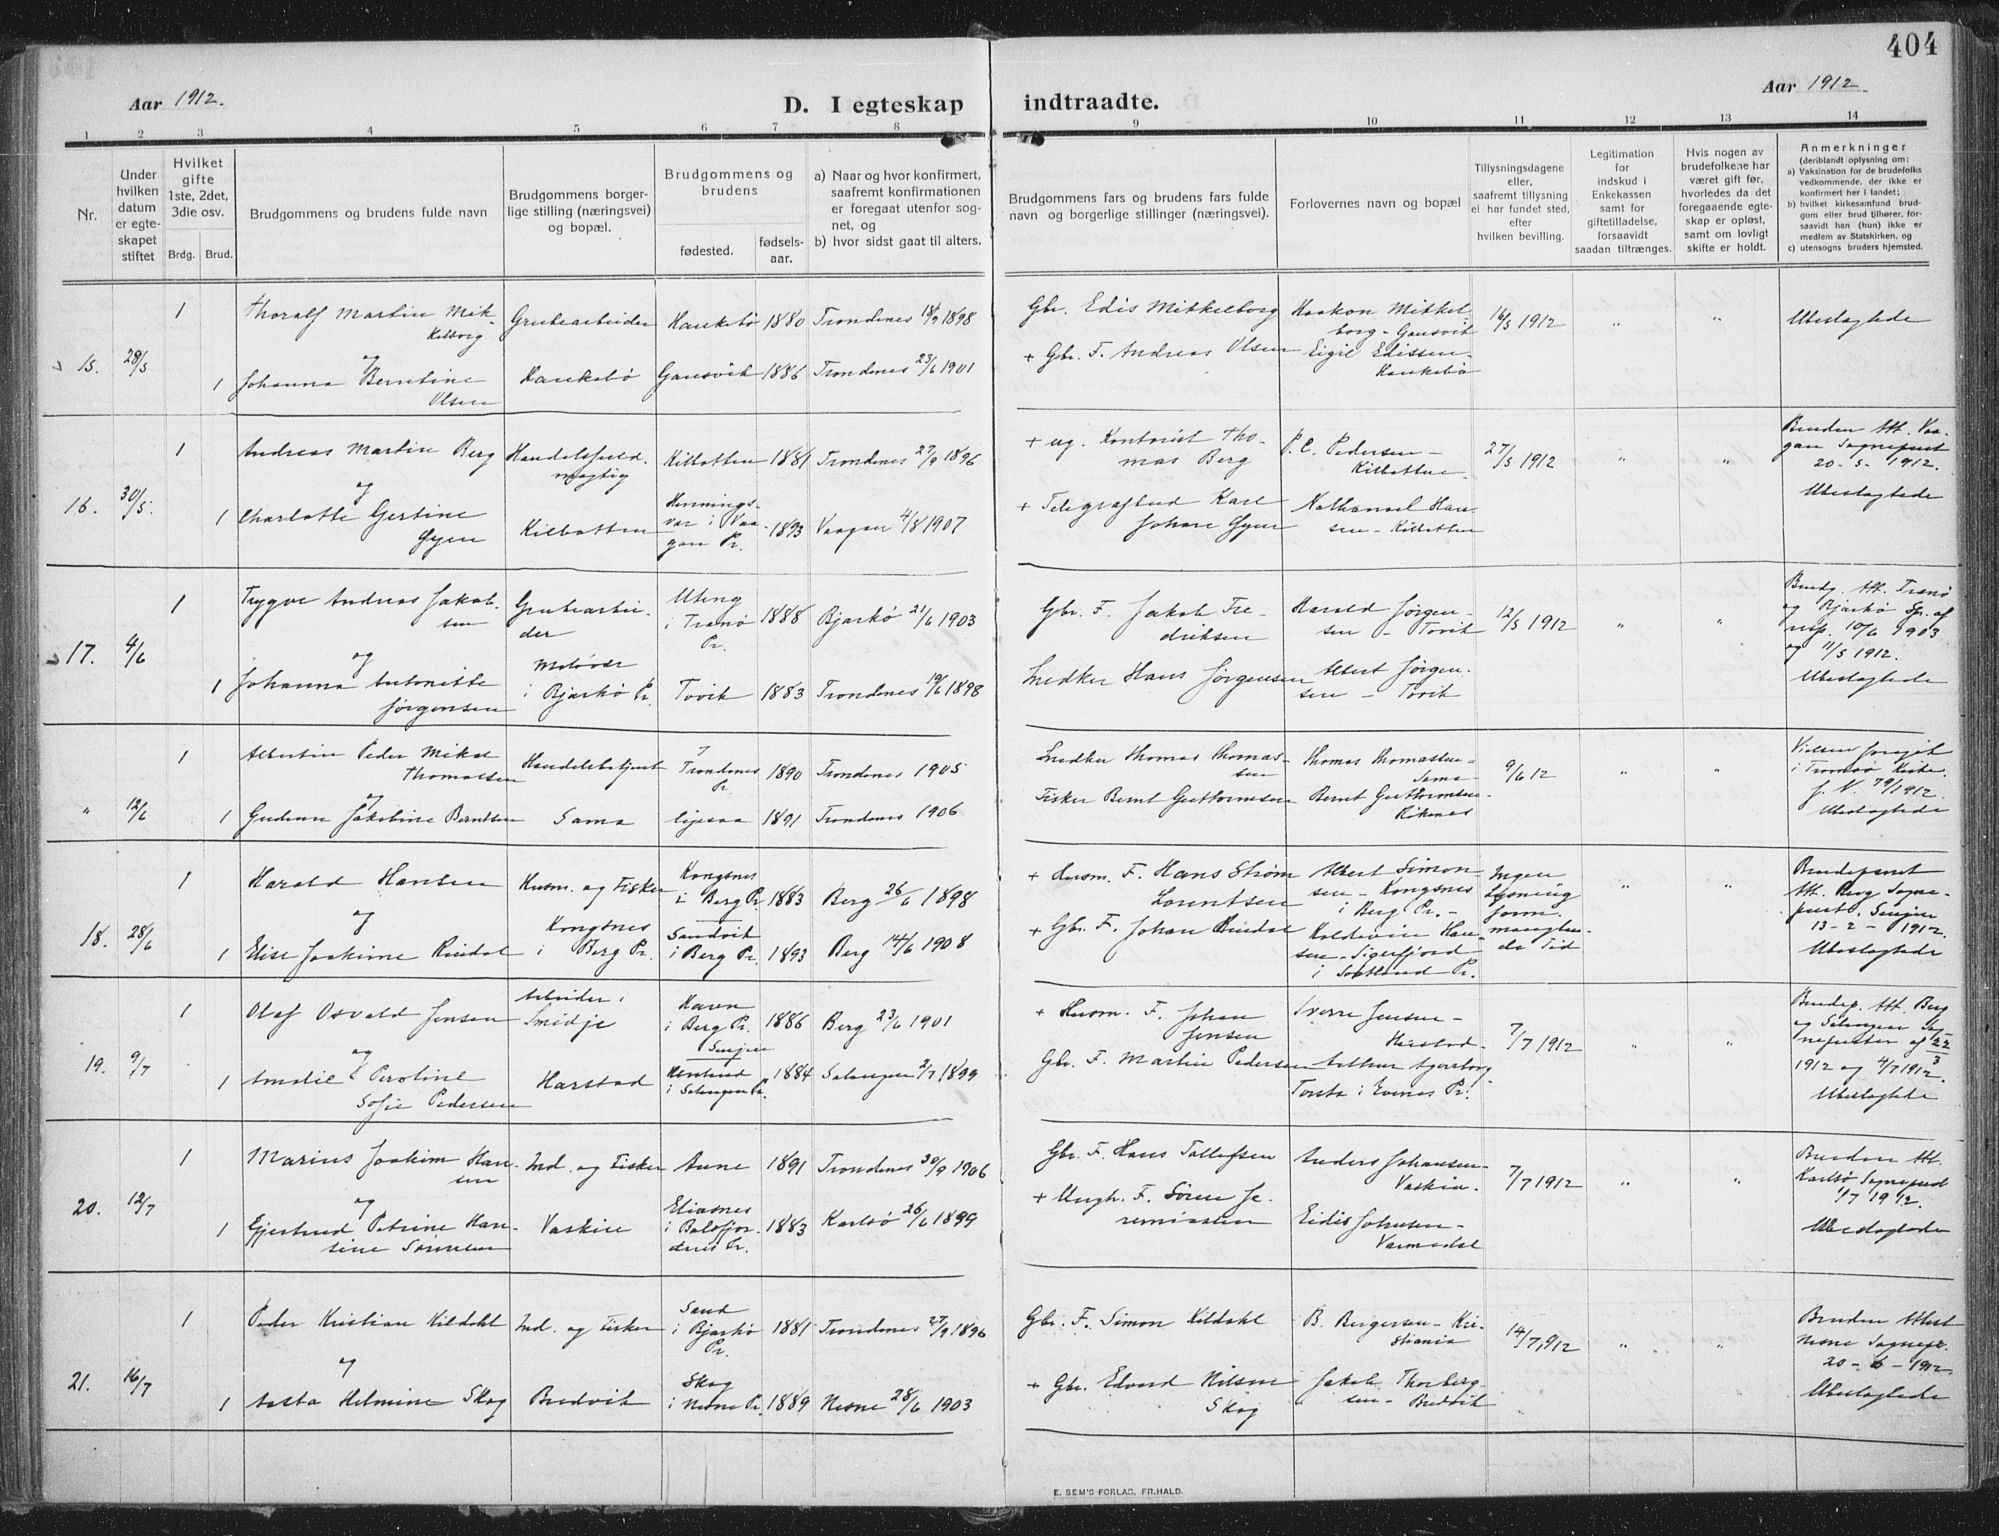 404
Aar 1912.
D. I egteskap indtraadte.
Aar 1912
1 2 3 4 5 6 7 8 9 10 11 12 13 14
Nr.
Under hvilken datum er egteskapet stiftet
Hvilket gifte 1ste, 2det, 3die osv.
Brdg. Brud.
Brudgommens og brudens fulde navn
Brudgommens borgerlige stilling (næringsvei) og bopæl.
Brudgommens og brudens
fødested.
fødselsaar.
a) Naar og hvor konfirmert, saafremt konfirmationen er foregaat utenfor sognet, og
b) hvor sidst gaat til alters.
Brudgommens fars og brudens fars fulde navn og borgerlige stillinger (næringsvei).
Forlovernes navn og bopæl
Tillysningsdagene eller, saafremt tillysning ei har fundet sted, efter hvilken bevilling.
Legitimation for indskud i Enkekassen samt for giftetilladelse, forsaavidt saadan tiltrænges.
Hvis nogen av brudefolkene har været gift før, hvorledes da det foregaaende egteskap er opløst, samt om lovligt skifte er holdt.
Anmerkninger
(deriblandt oplysning om:
a) Vaksination for de brudefolks vedkommende, der ikke er konfirmert her i landet;
b) hvilket kirkesamfund brudgom eller brud tilhører, forsaavidt han (hun) ikke er medlem av Statskirken, og
c) utensogns bruders hjemsted.
15. 28/5
1 Thoralf Martin Mikkelborg Grubearbeider Haukebø 1880 Trondenes 18/9 1898
og
1 Johanna Berntine Olsen Haukebø Gansvik 1886 Trondenes 23/6 1901
Gbr. Edis Mikkelborg
+ Gbr. F. Andreas Olsen
Haakon Mikkelborg - Gausvik
Eigil Edissen - Haukebø
16/5 1912 " " Ubeslægtede
16. 30/5.
1 Andreas Martin Berg Handelsfuldmægtig Kilbotten 1881 Trondenes 27/9 1896
og
1 Charlotte Gertine Gyen Kilbotten Henningsvær i Vaagan Pr. 1893 Vaagan 4/8 1907
+ ug. Kontorist Thomas Berg
+ Telegrafbud Karl Johan Gyen
P. C. Pedersen - Kilbotten.
Nathanael Hansen - Kilbotten
27/5 1912 " "
Bruden Att. Vaagan Sogneprest 20-5-1912.
Ubeslægtede
17. 4/6
1 Trygve Andreas Jakobsen Grubearbeider i Tranø Pr. 1888 Bjarkø 21/6 1903
og
1 Johanna Antonette Jørgensen i Bjarkø Pr. Tovik 1883 Trondenes 19/6 1898
Gbr. F. Jakob Fredriksen
Snedker Hans Jørgensen
Harald Jørgensen - Tovik
Albert Jørgensen - Tovik
12/5 1912 " "
Brudg. Att. Tranø og Bjarkø Spr. af resp. 10/6 1903 og 11/5 1912.
Ubeslægtede
" 12/6
1 Albertin Peder Mikal Thomassen Handelsbetjent Trondenes Pr. 1890 Trondenes 1905
og
1 Gudrun Jakobine Berntsen Sama 1891 Trondenes 1906
Snedker Thomas Thomassen
Fisker Bernt Guttormsen
Thomas Thomassen - Sama -
Bernt Guttormsen - Rikenes
9/6 12 " "
Vielsen foregik i Tromsø Kirke
Ubeslægtede
18. 28/6
1 Harald Hansen Husm. og Fisker Kongsnes i Berg Pr. 1883 Berg 26/6 1898
og
1 Elise Joakime Rindal Kongsnes i Berg Pr. Sandvik i Berg Pr. 1893 Berg 14/6 1908
+ Husm. F. Hans Strøm Lorentsen
+ Gbr. F. Johan Rindal
Albert Simonsen - Kongsnes i Berg Pr. -
Hansen - Sigerfjord i Sortland Pr.
Ingen lysning form. manglende Tid " "
Brudeparret Att. Berg Sogneprest. Senjen 13-2-1912.
Ubeslægtede
19. 9/7
1 Olaf Osvald Jensen Arbeider i Smidje Havn i Berg Pr. Senjen 1886 Berg 23/6 1901
og
1 Amalie Peroline Sofie Pedersen Harstad i Salangen Pr. 1884 Salangen 2/7 1899
+ Husm. F. Johan Jensen
Gbr. F. Martin Pedersen
Sverre Jensen - Harstad -
Torsta i Evenes Pr.
7/7 1912 " "
Brudep. Att. Berg og Salangen Sogneprester af 22/3 1912 og 4/7 1912.
Ubeslægtede
20. 12/7
1 Marius Joakim Hansen Ind. og Fisker Aune 1891 Trondenes 30/9 1906
og
1 Gjertrud Petrine Hansine Sørensen Vaskire Eliasnes i Balsfjordens Pr. 1883 Karlsø 26/6 1899
Gbr. F. Hans Tollefsen
+ Ungk. F. Søren Jeremiassen
Anders Johansen - Vaskire.
Eidis Johnsen - Varmedal
7/7 1912 " "
Bruden Att. Karlsø Sogneprest 1/7 1912.
Ubeslægtede
21. 16/7
1 Peder Kristian Kildahl Ind. og Fisker Sand i Bjarkø Pr. 1881 Trondenes 27/9 1896
og
1 Aasta Helmine Skog Bredvik Skog i Nesne Pr. 1889 Nesne 28/6 1903
Gbr. F. Simon Kildahl
+ Gbr. Edvard Nilsen Skog
B. Bergersen - Kristiania
Jakob Thorbergsen - Bredvik
14/7 1912 " "
Bruden Attest Nesne Sognepr. 20-6-1912.
Ubeslægtede
E. SEM'S FORLAG, FR.HALD.